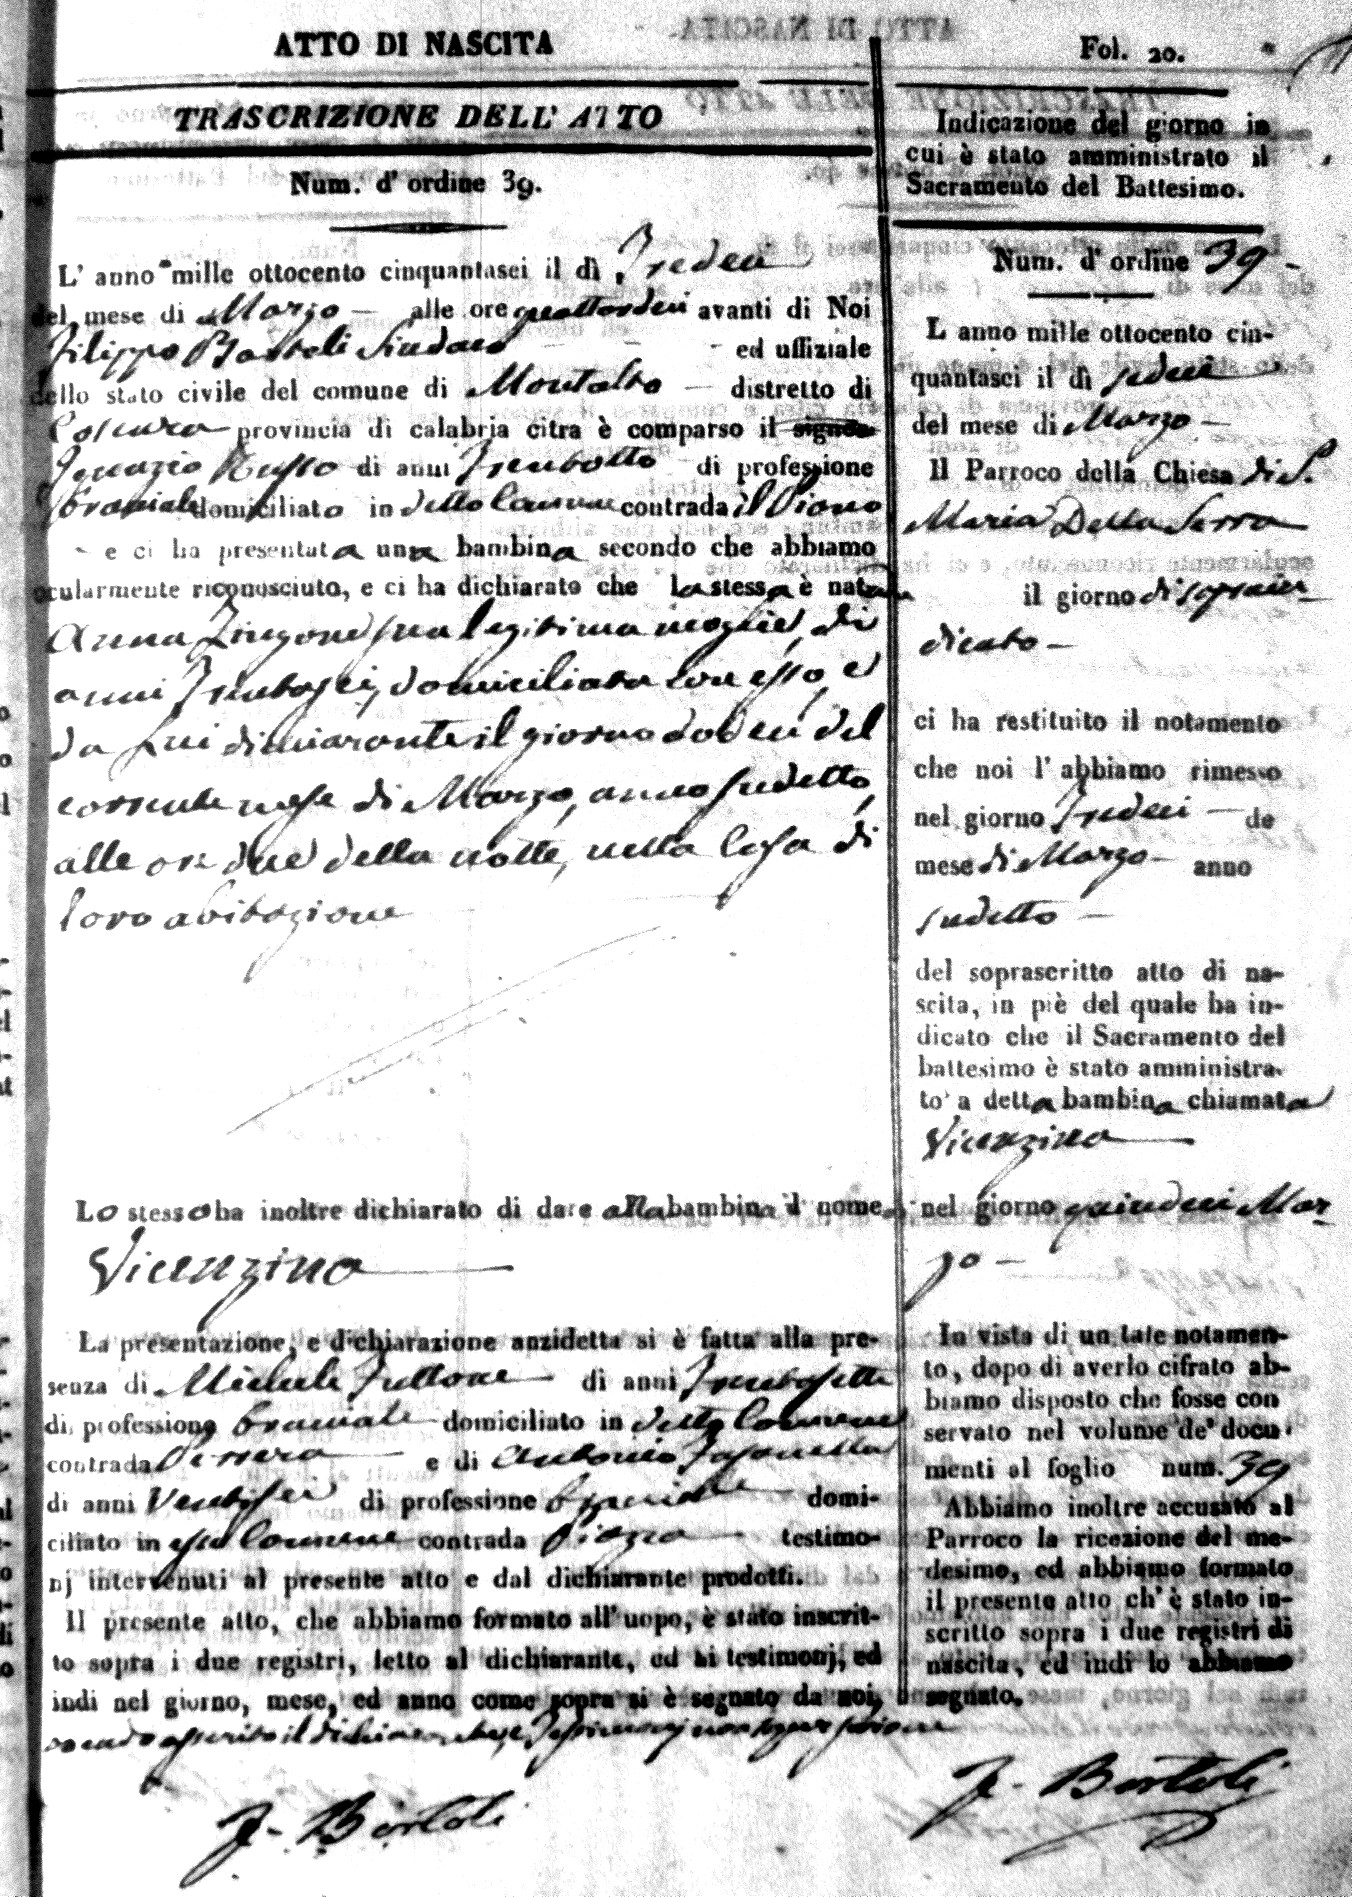 ATTO DI NASCITA
TRASCRIZIONE DELL' ATTO
Num. d' ordine 39.
L' anno mille ottocento cinquantasei il dì Tredeci
del mese di Marzo alle ore quattordeci avanti di Noi
Filippo Bartoli Sindaco ed uffiziale
dello stato civile del comune di Montalto distretto di
Cosenza provincia di calabria citra è comparso il signor
Ignazio Russo di anni Trentotto di professione
Bracciale domiciliato in detto Comune contrada il Piano
e ci ha presentata una bambina secondo che abbiamo
ocularmente riconosciuto, e ci ha dichiarato che la stessa è nata da
Anna Zingone sua legitima moglie, di
anni Trentasei, domiciliata con esso, e
da Lui dichiarante il giorno dodeci del
corrente mese di Marzo, anno sudetto,
alle ore due della notte, nella Casa di
loro abitazione
Lo stesso ha inoltre dichiarato di dare alla bambina il nome di
Vicenzina
La presentazione, e dichiarazione anzidetta si è fatta alla pre-
senza di Michele di anni Trentasette
di professione Bracciale domiciliato in detto Comune
contrada e di Antonio
di anni Ventisei di professione Bracciale domi-
ciliato in esso Comune contrada Piazza testimo-
nj intervenuti al presente atto e dal dichiarante prodotti.
Il presente atto, che abbiamo formato all' uopo, è stato inscrit-
to sopra i due registri, letto al dichiarante, ed ai testimonj, ed
indi nel giorno, mese, ed anno come sopra si è segnato da noi,
avendo asserito il dichiarante, e Testimonj non saper scrivere
F. Bartoli
Fol. 20.
Indicazione del giorno in
cui è stato amministrato il
Sacramento del Battesimo.
Num. d' ordine 39
L anno mille ottocento cin-
quantasei il dì sedeci
del mese di Marzo
Il Parroco della Chiesa di S.
Maria Della Serra
il giorno di sopra in-
dicato
ci ha restituito il notamento
che noi l' abbiamo rimesso
nel giorno Tredeci de
mese di Marzo anno
sudetto
del soprascritto atto di na-
scita, in piè del quale ha in-
dicato che il Sacramento del
battesimo è stato amministra-
to a detta bambina chiamata
Vicenzina
nel giorno quindeci Mar-
zo
In vista di un tale notamen-
to, dopo di averlo cifrato ab-
biamo disposto che fosse con
servato nel volume de' docu-
menti al foglio num. 39
Abbiamo inoltre accusato al
Parroco la ricezione del me-
desimo, ed abbiamo formato
il presente atto ch' è stato in-
scritto sopra i due registri di
nascita, ed indi lo abbiamo
segnato.
F. Bartoli